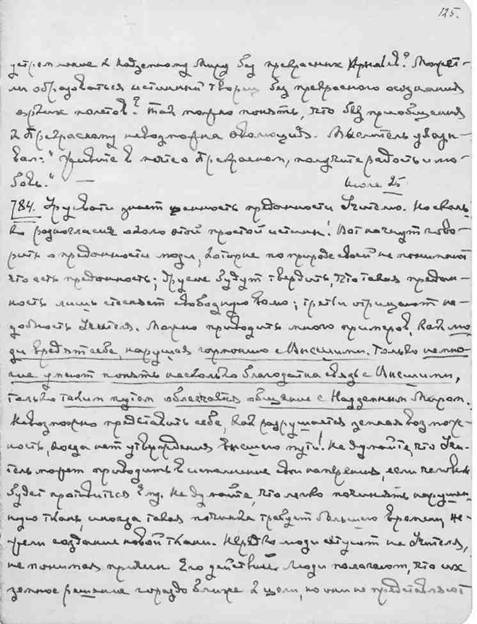 125.
устремление к Надземному Миру без прекрасных крыльев? Может
ли образоваться истинный творец без прекрасного осознания
дальних полетов? Так можно понять, что без приобщения
к Прекрасному невозможна эволюция. Мыслитель указы-
вал: "Чтите в поте о Прекрасном, получите радость и лю-
бовь." —
Июль 25
784. Урусвати знает ценность преданности Учителю. Но сколь-
ко разногласия около этой простой истины! Вот начнут гово-
рить о преданности люди, которые по природе своей не понимают
что есть преданность; другие будут твердить, что такая предан-
ность лишь стесняет свободную волю; третьи отрицают на-
добность Учителя. Можно приводить много примеров, как лю-
ди вредят себе, нарушая гармонию с Высшими. Только немно-
гие умеют понять насколько благодатна связь с Высшими,
только таким путем облегчается общение с Надземным Миром.
Невозможно представить себе, как разрушается целая возмож-
ность, когда нет утверждения высшего пути! Не думайте, что Учи-
тель может приводить в исполнение свои намерения, если человек
будет противиться Ему. Не думайте, что легко починять нарушен-
ную ткань, иногда такая починка требует большего времени не-
жели создание новой ткани. Нередко люди сетуют на Учителя,
не понимая причин Его действий. Люди полагают, что их
земное решение гораздо ближе к цели, но они не представляют